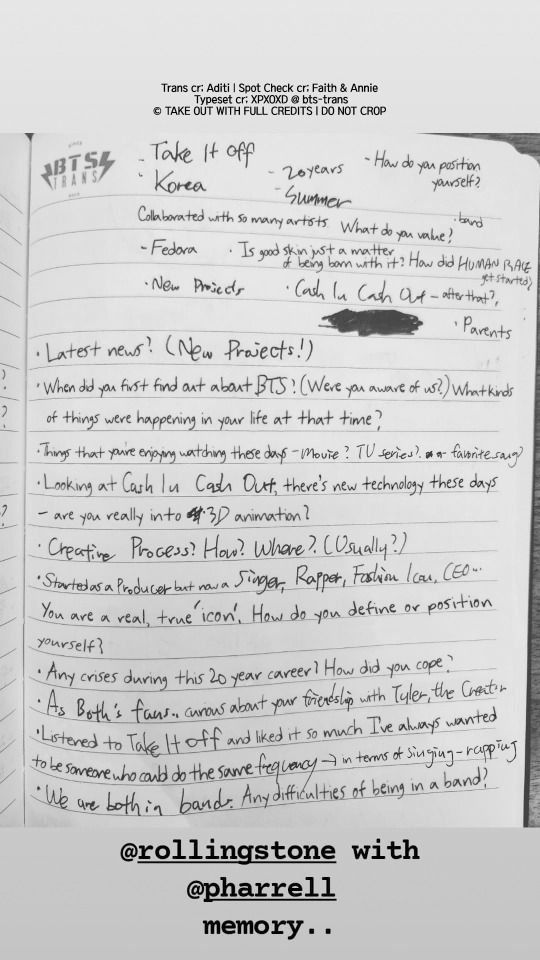 Trans cr; Aditi | Spot Check cr; Faith & Annie
Typeset cr; XPXOXD @ bts-trans
© TAKE OUT WITH FULL CREDITS | DO NOT CROP
BTS
TRANS
- Take It off
- Korea
- 20years
- Summer
- How do you position
yourself?
Collaborated with so many artists. What do you value?
· band
- Fedora
· Is good skin just a matter
of being born with it?
How did HUMAN RACE
get started?
· New Projects
· Cash In Cash Out - after that?,
· Parents
· Latest news? (New Projects!)
· When did you first find out about BTS? (Were you aware of us?) What kinds
of things were happening in your life at that time?
· Things that you're enjoying watching these days - Movie? TV series? favorite song?
· Looking at Cash In Cash Out, there's new technology these days
- are you really into 3D animation?
· Creative Process? How? Where? (Usually?)
· Started as a Producer but now a Singer, Rapper, Fashion Icon, CEO...
You are a real, true 'icon'. How do you define or position
yourself?
· Any crises during this 20 year career? How did you cope?
· As Both's fans.. curious about your friendship with Tyler, the Creator
· Listened to Take It off and liked it so much I've always wanted
to be someone who could do the same frequency → in terms of singing-rapping
· We are both in bands. Any difficulties of being in a band?
@rollingstone with
@pharrell
memory..